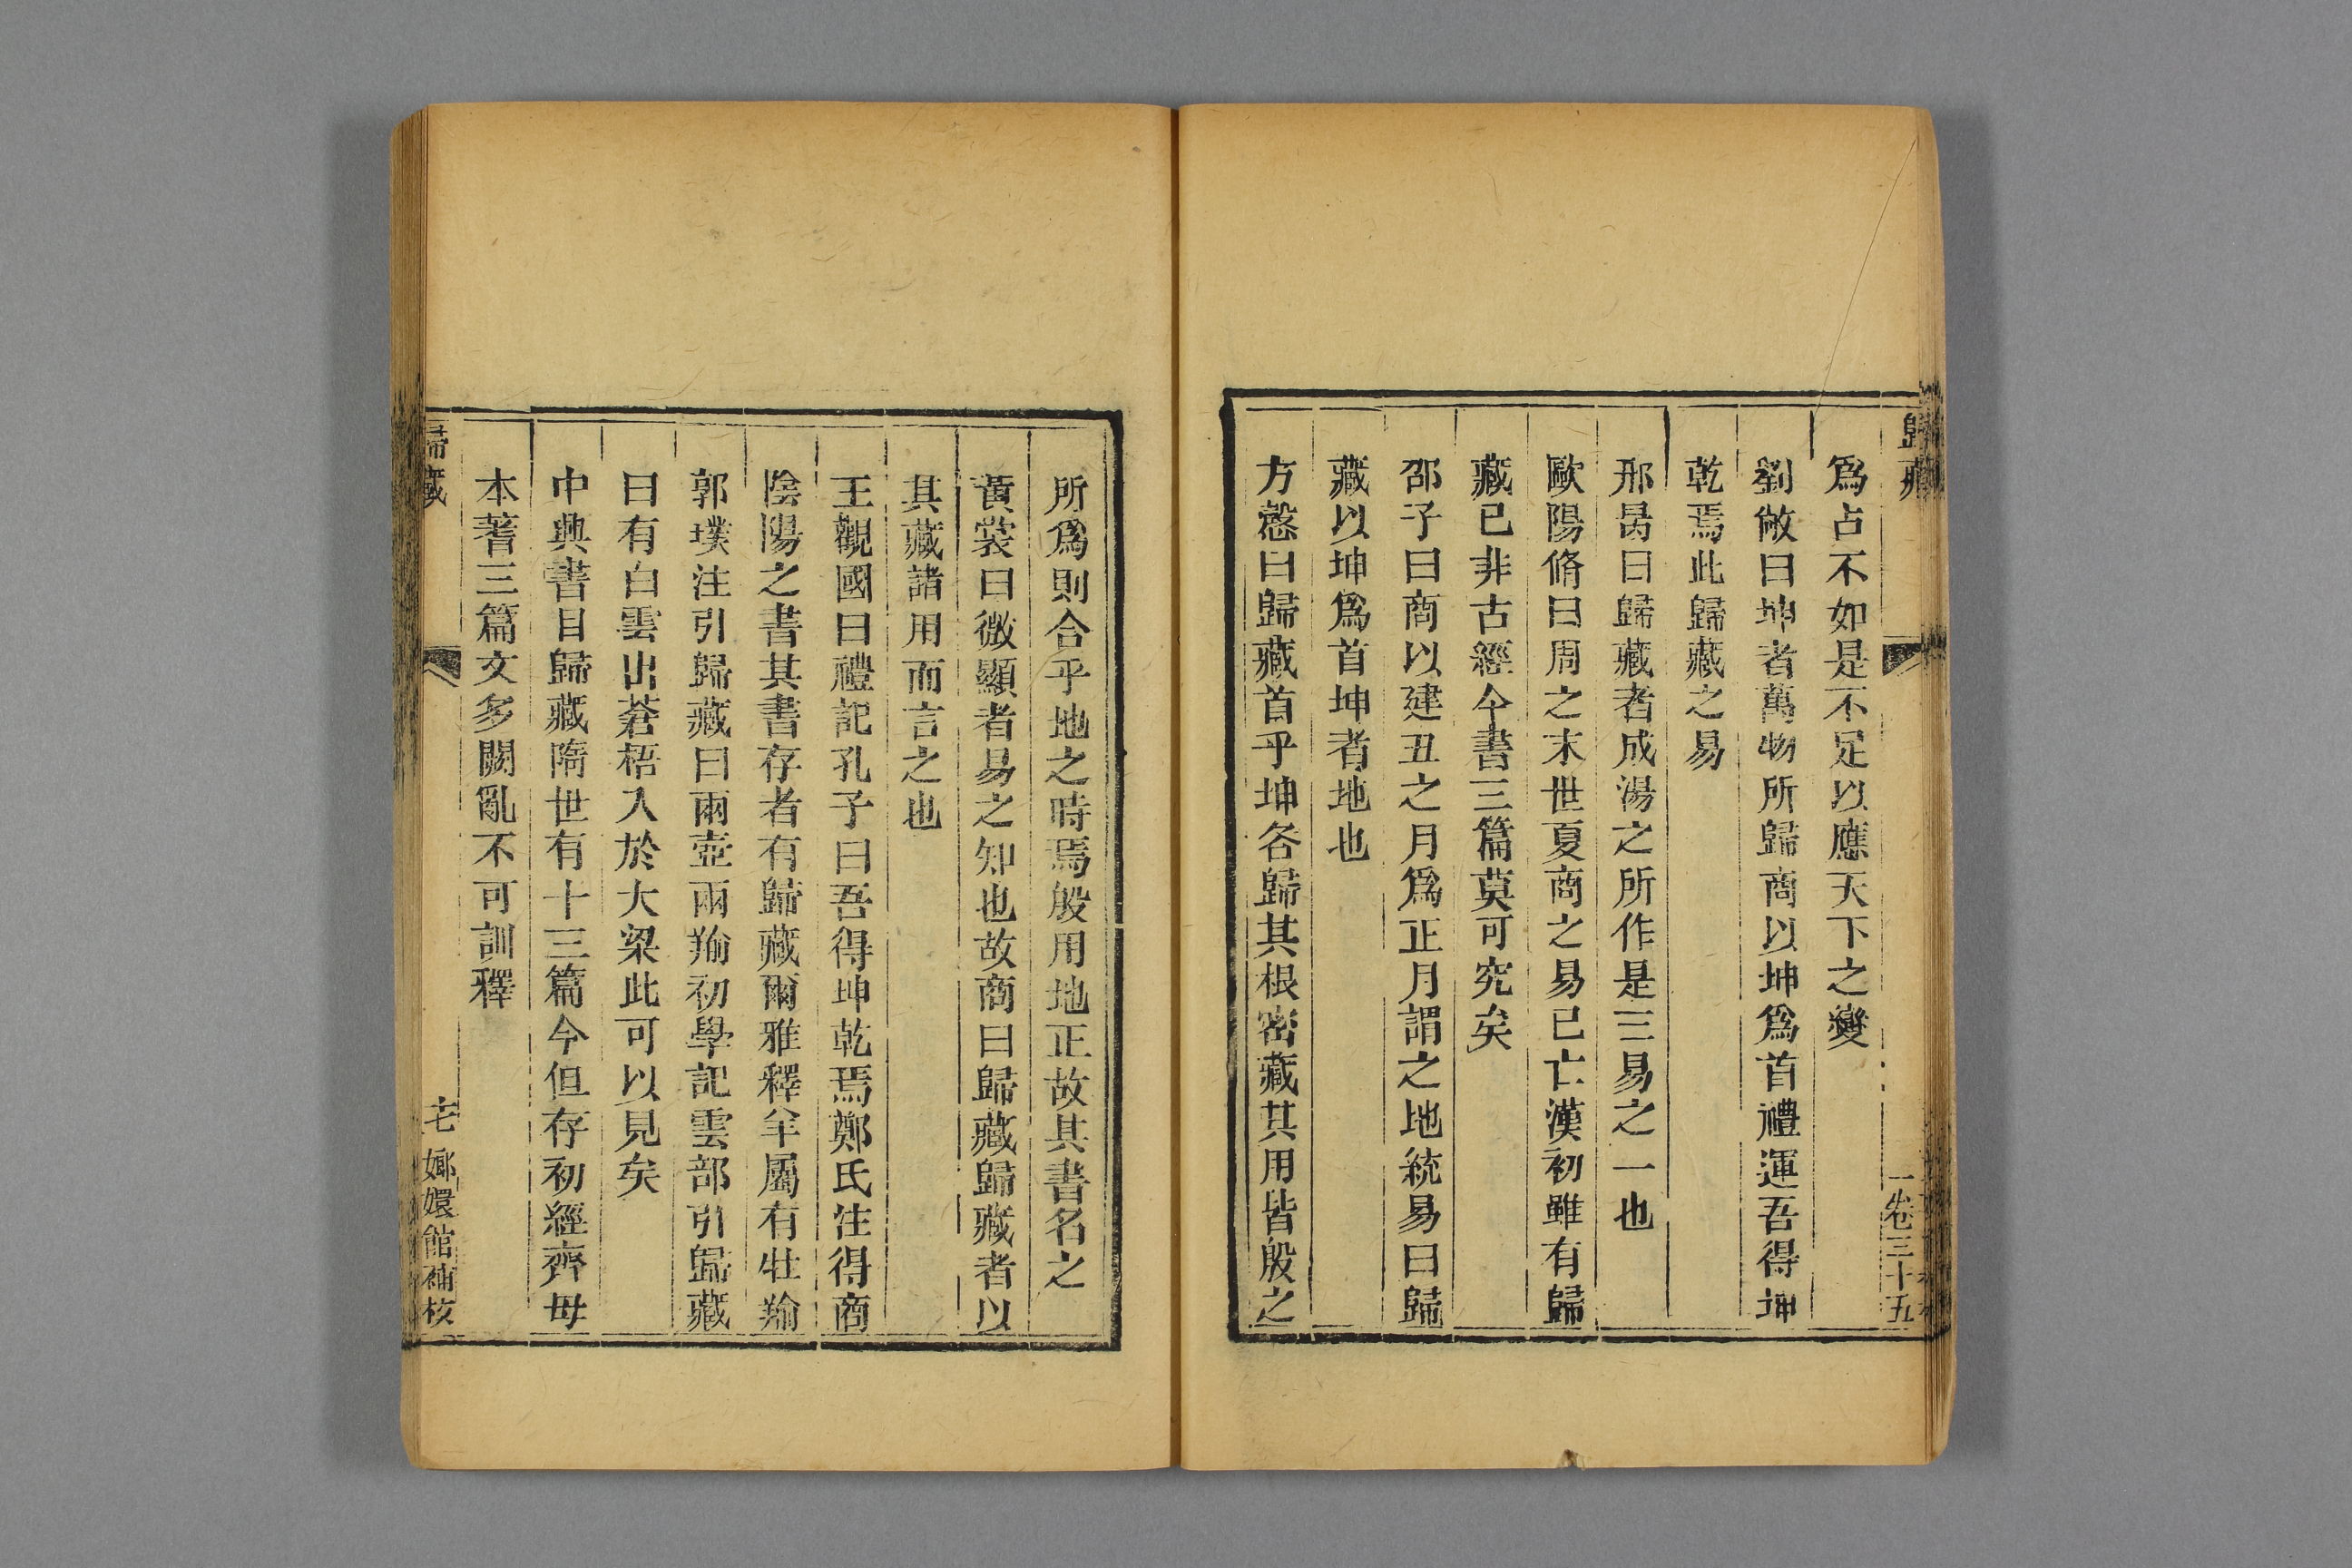 歸藏
一卷三十五
爲占不如是不足以應天下之變
劉敞曰坤者萬物所歸商以坤爲首禮運吾得坤
乾焉此歸藏之易
邢昺曰歸藏者成湯之所作是三易之一也
歐陽脩曰周之末世夏商之易已亡漢初雖有歸
藏已非古經今書三篇莫可究矣
邵子曰商以建丑之月爲正月謂之地統易曰歸
藏以坤爲首坤者地也
方慤曰歸藏首乎坤各歸其根密藏其用皆殷之
所爲則合乎地之時焉殷用地正故其書名之
黃裳曰微顯者易之知也故商曰歸藏歸藏者以
其藏諸用而言之也
王觀國曰禮記孔子曰吾得坤乾焉鄭氏注得商
陰陽之書其書存者有歸藏爾雅釋羊屬有牡羭
郭璞注引歸藏曰兩壺兩羭初學記雲部引歸藏
曰有白雲出蒼梧入於大梁此可以見矣
中興書目歸藏隋世有十三篇今但存初經齊母
本蓍三篇文多闕亂不可訓釋
歸藏
嫏嬛館補校